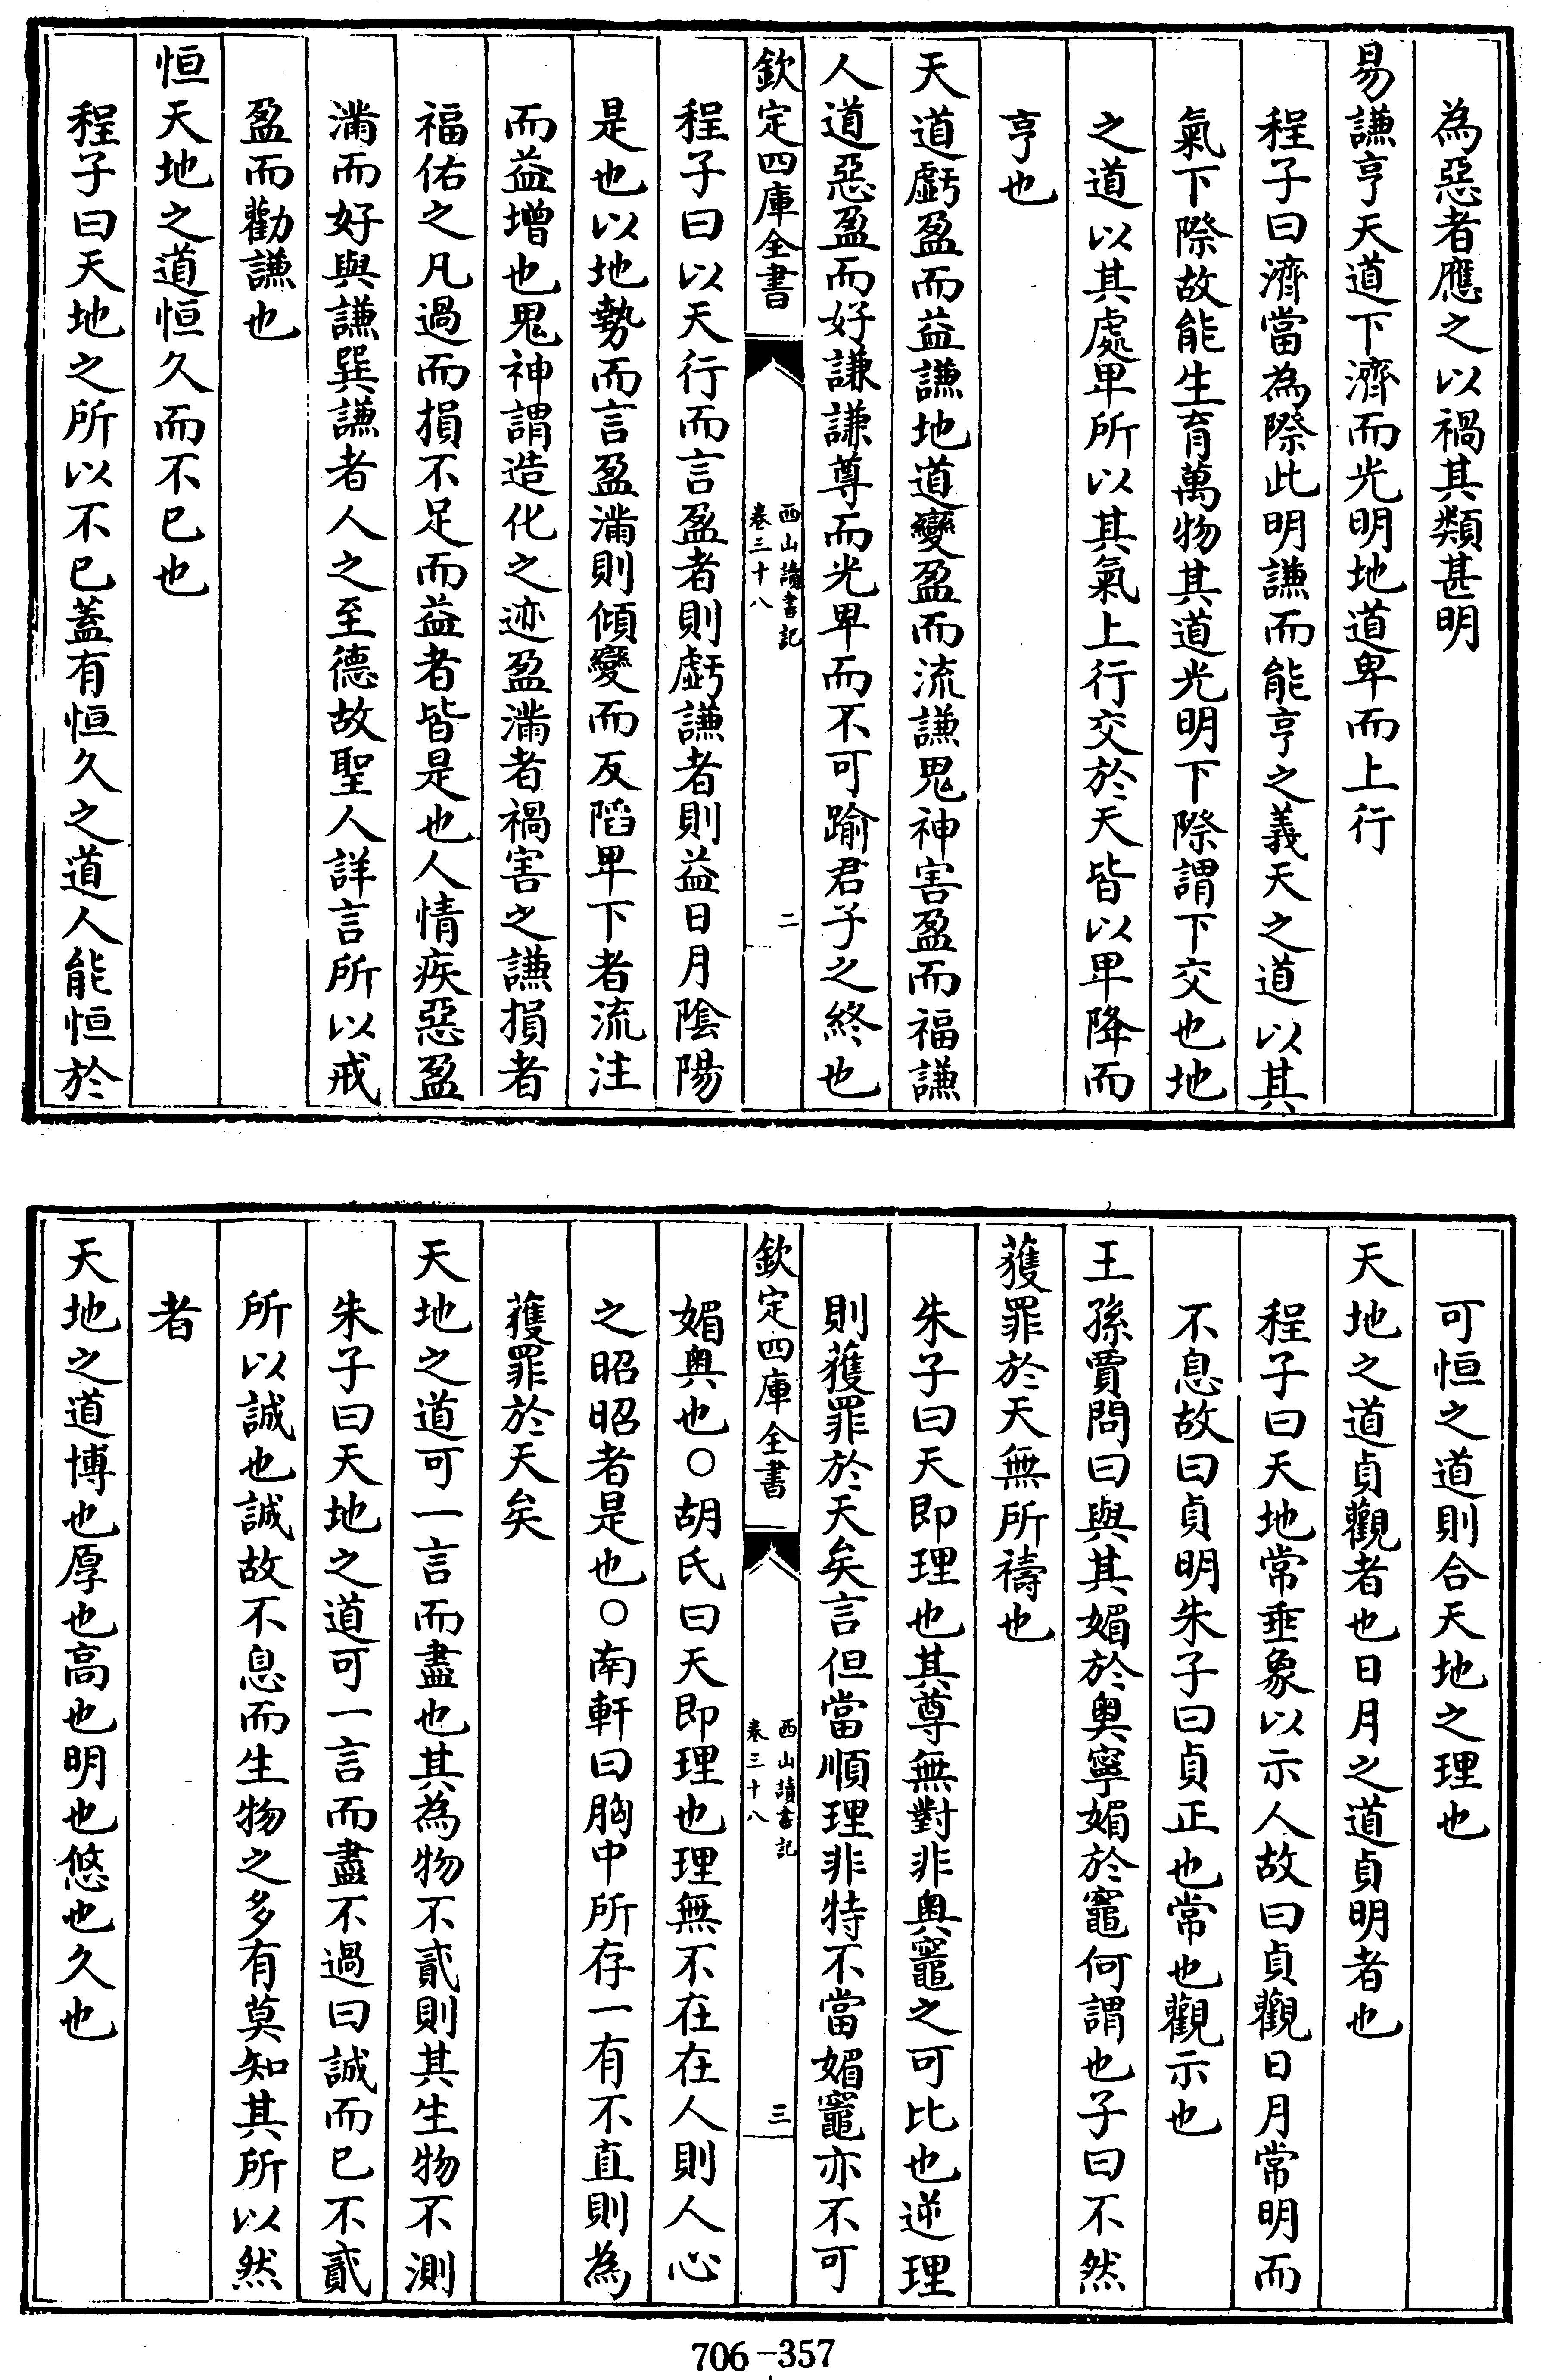 為惡者應之以禍其類甚明
易謙亨天道下濟而光明地道卑而上行
程子曰濟當為際此明謙而能亨之義天之道以其
氣下際故能生育萬物其道光明下際謂下交也地
之道以其處卑所以其氣上行交於天皆以卑降而
亨也
天道虧盈而益謙地道變盈而流謙鬼神害盈而福謙
人道惡盈而好謙謙尊而光卑而不可踰君子之終也
欽定四庫全書
西山讀書記
卷三十八
二
程子曰以天行而言盈者則虧謙者則益日月陰陽
是也以地勢而言盈滿則傾變而反陷卑下者流注
而益增也鬼神謂造化之迹盈滿者禍害之謙損者
福佑之凡過而損不足而益者皆是也人情疾惡盈
滿而好與謙巽謙者人之至德故聖人詳言所以戒
盈而勸謙也
恒天地之道恒久而不已也
程子曰天地之所以不已蓋有恒久之道人能恒於
可恒之道則合天地之理也
天地之道貞觀者也日月之道貞明者也
程子曰天地常垂象以示人故曰貞觀日月常明而
不息故曰貞明朱子曰貞正也常也觀示也
王孫賈問曰與其媚於奧寧媚於竈何謂也子曰不然
獲罪於天無所禱也
朱子曰天即理也其尊無對非奧竈之可比也逆理
則獲罪於天矣言但當順理非特不當媚竈亦不可
欽定四庫全書
西山讀書記
卷三十八
三
媚奧也○胡氏曰天即理也理無不在在人則人心
之昭昭者是也○南軒曰胸中所存一有不直則為
獲罪於天矣
天地之道可一言而盡也其為物不貳則其生物不測
朱子曰天地之道可一言而盡不過曰誠而已不貳
所以誠也誠故不息而生物之多有莫知其所以然
者
天地之道博也厚也高也明也悠也久也
706-357